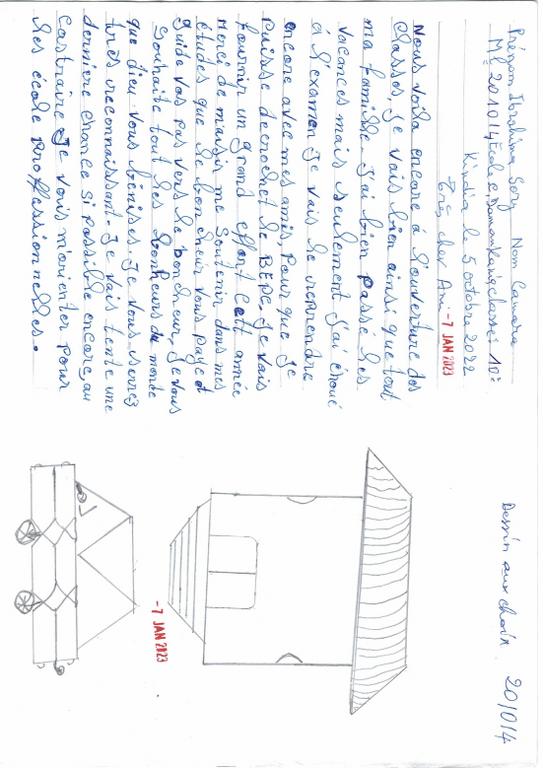 Prénom Ibrahima Sory Nom Camara
Mle 201014 Ecole, Damankania classe: 10e
Kindia le 5 octobre 2022
très, cher Ami
-7 JAN 2023
Nous voila encore à l'ouverture des
classes, je vais bien ainsi que tout
ma famille. J'ai bien passé les
vacances mais seulement j'ai échoué
à l'examen je vais le reprendre
encore avec mes amis, pour que je
puisse decrochet le BEPC. Je vais
fournir un grand effort cett année
Merci de mavoir me soutenir dans mes
études que le bon cheur vous paye et
guide vos pas vers le bonheur, je vous
souhaite tout les bonheurs du monde
que dieu vous bénisses je vous serrez
très reconnaissant. Je vais tente une
dernière chance si possible encore, au
castraire je vais m'orienter pour
les école professionnelles.
Dessin aux choix. 201014
-7 JAN 2023